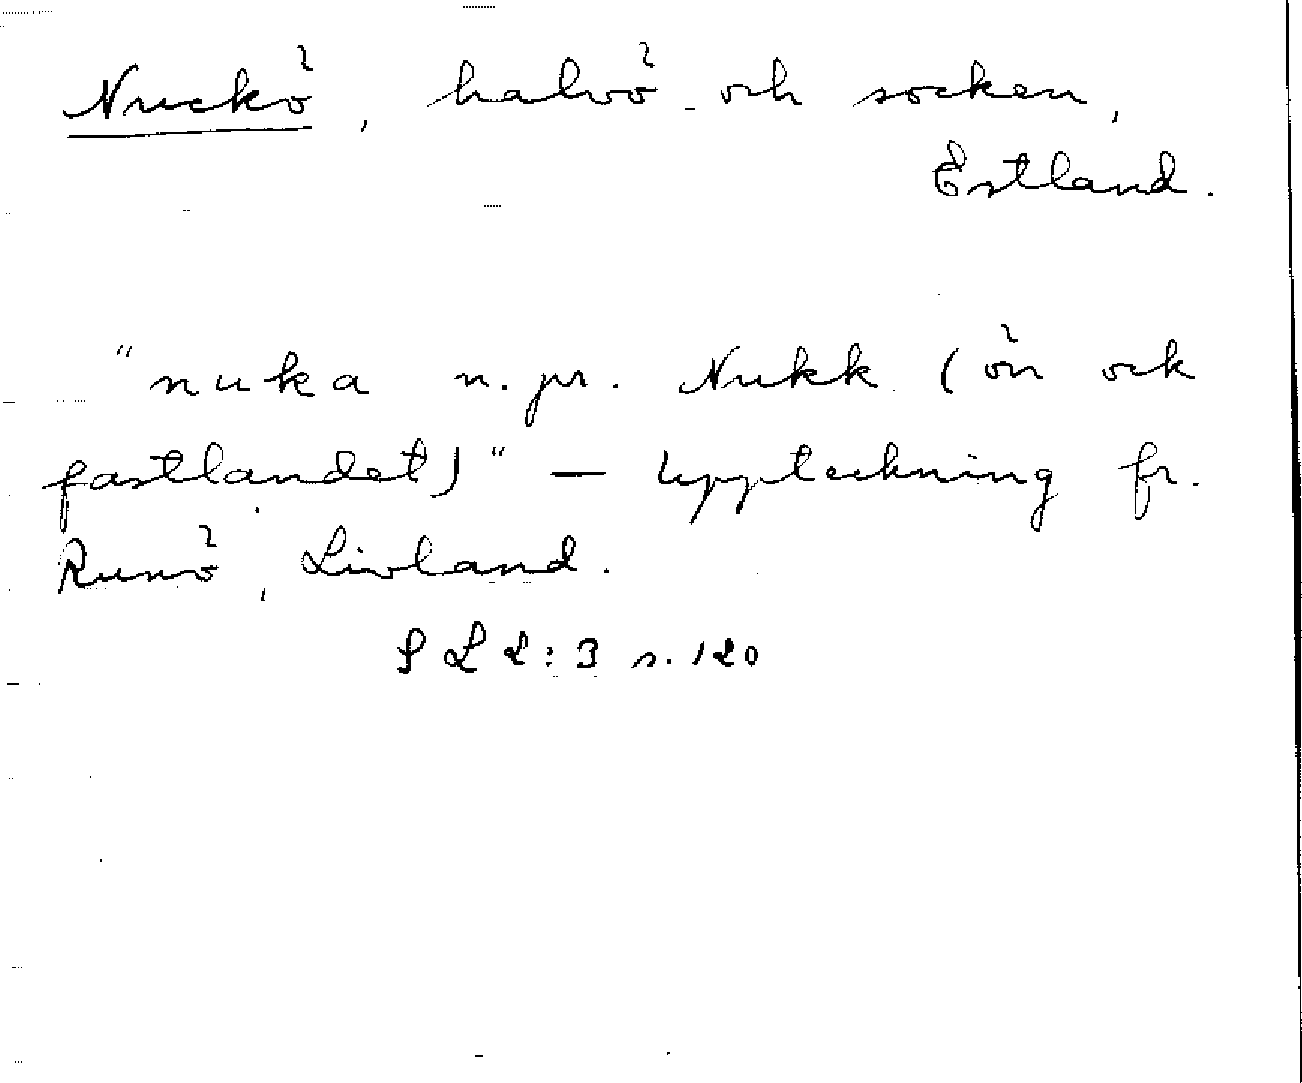 Nuckö, halvö och socken,
Estland.
"nuka n. pr. Nukk (ön ock
fastlandet)" — Uppteckning fr.
Runö, Livland.
SL 2:3 s. 120